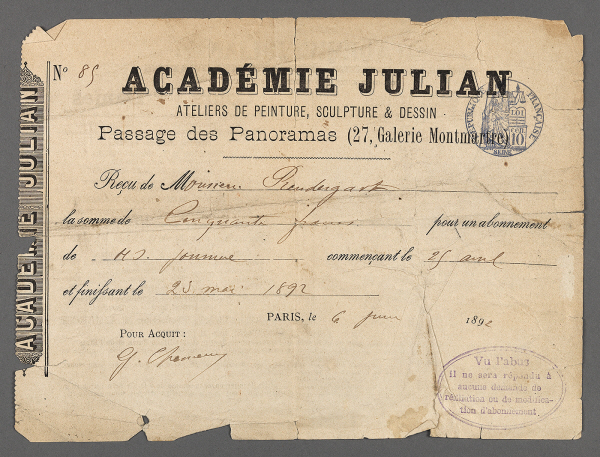 ACADÉMIE JULIAN
Nº 85
ACADÉMIE JULIAN
ATELIERS DE PEINTURE, SCULPTURE & DESSIN
Passage des Panoramas (27, Galerie Montmartre)
FRANÇAISE
10
SEINE
Reçu de Monsieur Prendergast
la somme de Cinquante francs pour un abonnement
de commençant le 25 avril
et finissant le 23 mai 1892
PARIS, le 6 1892
POUR ACQUIT :
Vu l'abus
il ne sera répondu à
aucune demande de
résiliation ou de modifica-
tion d'abonnement.